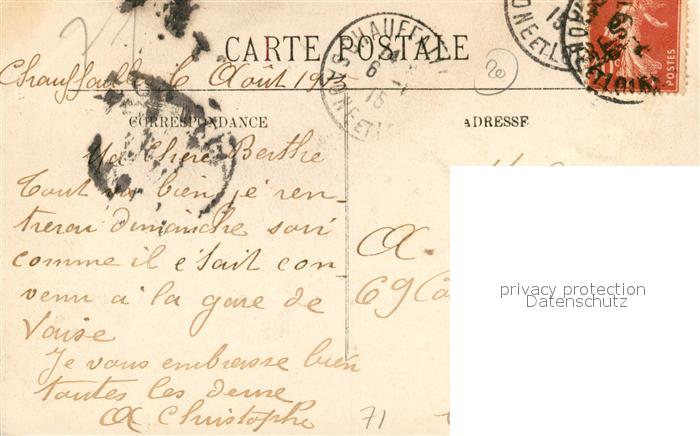 CARTE POSTALE
Chauffailles 6 Août 1915
CORRESPONDANCE
ADRESSE
Ma Chère Berthe
Tout va bien je ren-
trerai dimanche soir
comme il était con
venu à la gare de
Vaise
Je vous embrasse bien
toutes les deux
A Christophe
A.
69
71
20
CHAUFFAI
6
15
POSTES
privacy protection
Datenschutz